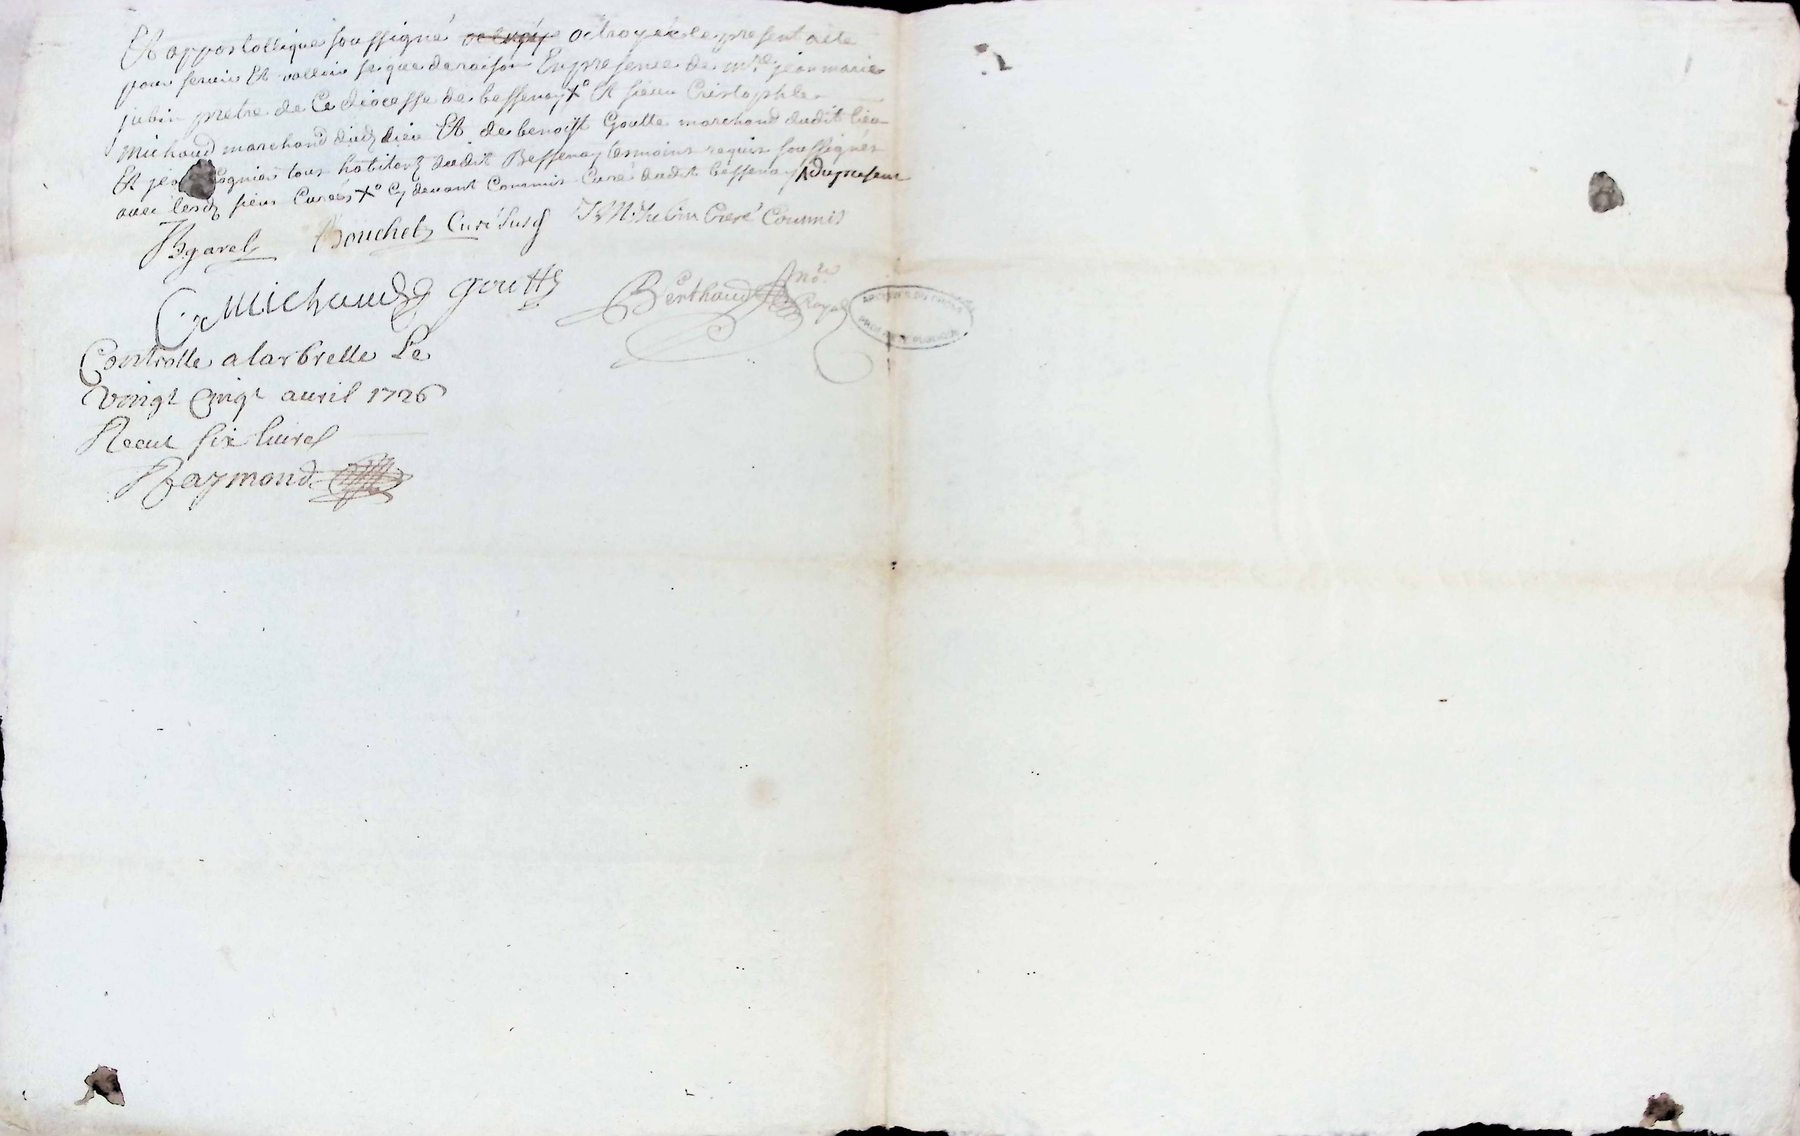 Et appostollique soussigné octroyé le present acte
pour servir Et valloir se que de raison En presence de mre jean marie
jubin pretre de Ce diocesse de bessenay Xo Et sieur Cristophle
michaud marchand dud lieu Et de benoist Goutte marchand dudit lieu
Et jean tous habitans dudit Bessenay temoins requis soussignés
avec lesd sieur Curés Xo Cy devant Commis Curé dudit bessenay
Bgarel Bouchet Curé susd J M Jubin Curé Commis
C Michaud goutte Berthaud nre Royal
Controlle a larbrelle Le
vingt Cinqt avril 1726
Recut six livres
Raymond